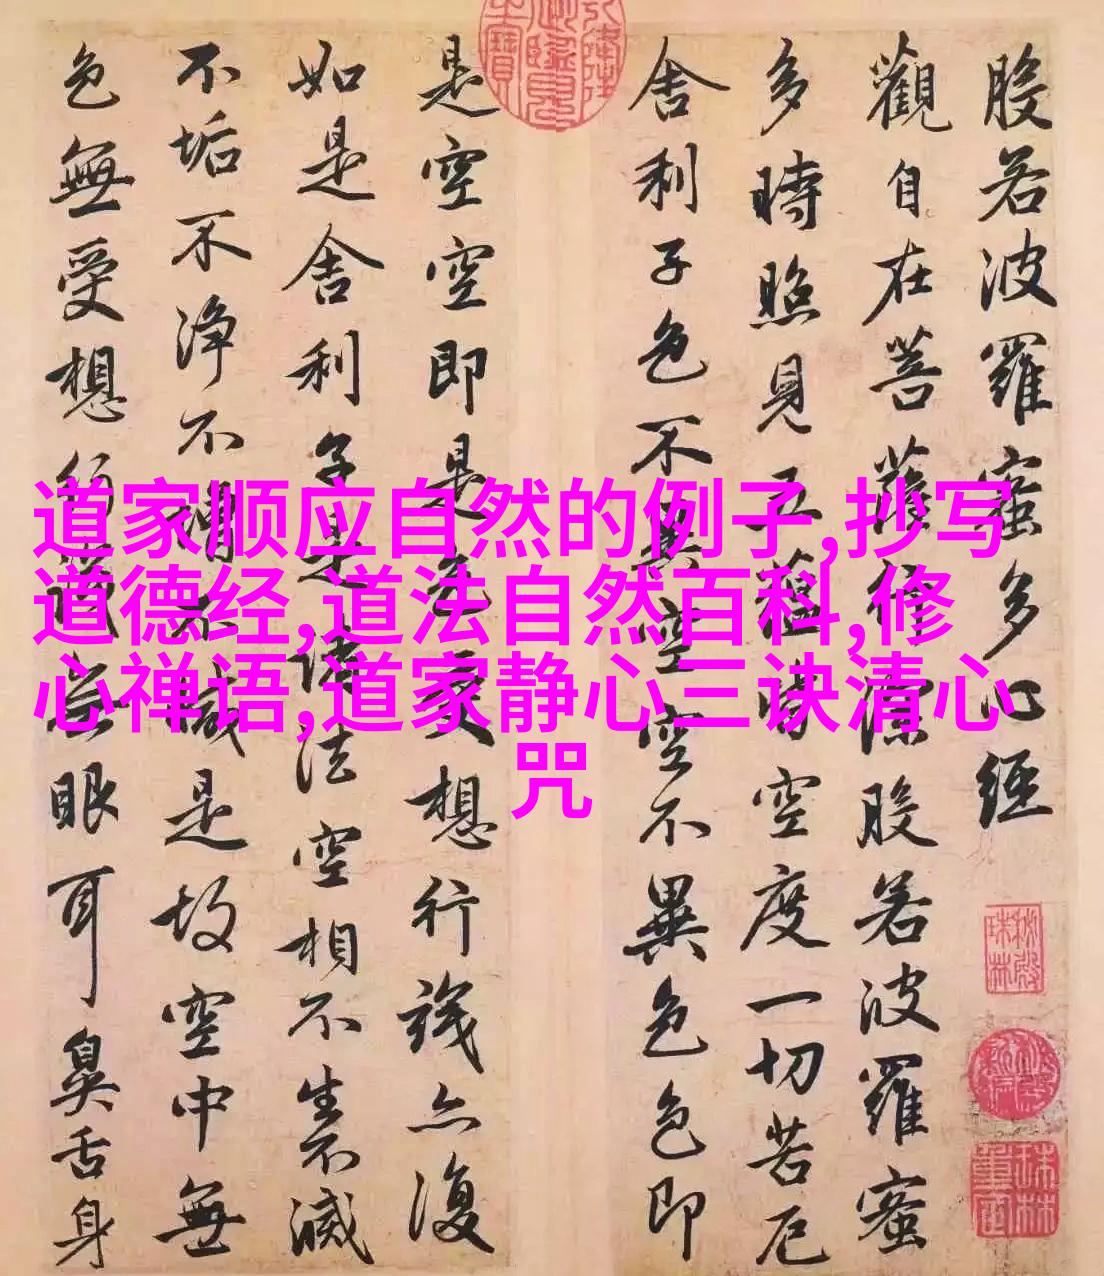 般若波羅蜜多心經
觀自在菩薩行深般若波羅蜜
多時照見五蘊皆空度一切苦厄
舍利子色不異空空不異色色即
是空空即是色受想行識亦復
如是舍利子是諸法空相不生不滅
不垢不淨不增不減是故空中無
色無受想行識無眼耳鼻舌身
道家顺应自然的例子,抄写
道德经,道法自然百科,修
心禅语,道家静心三诀清心
咒